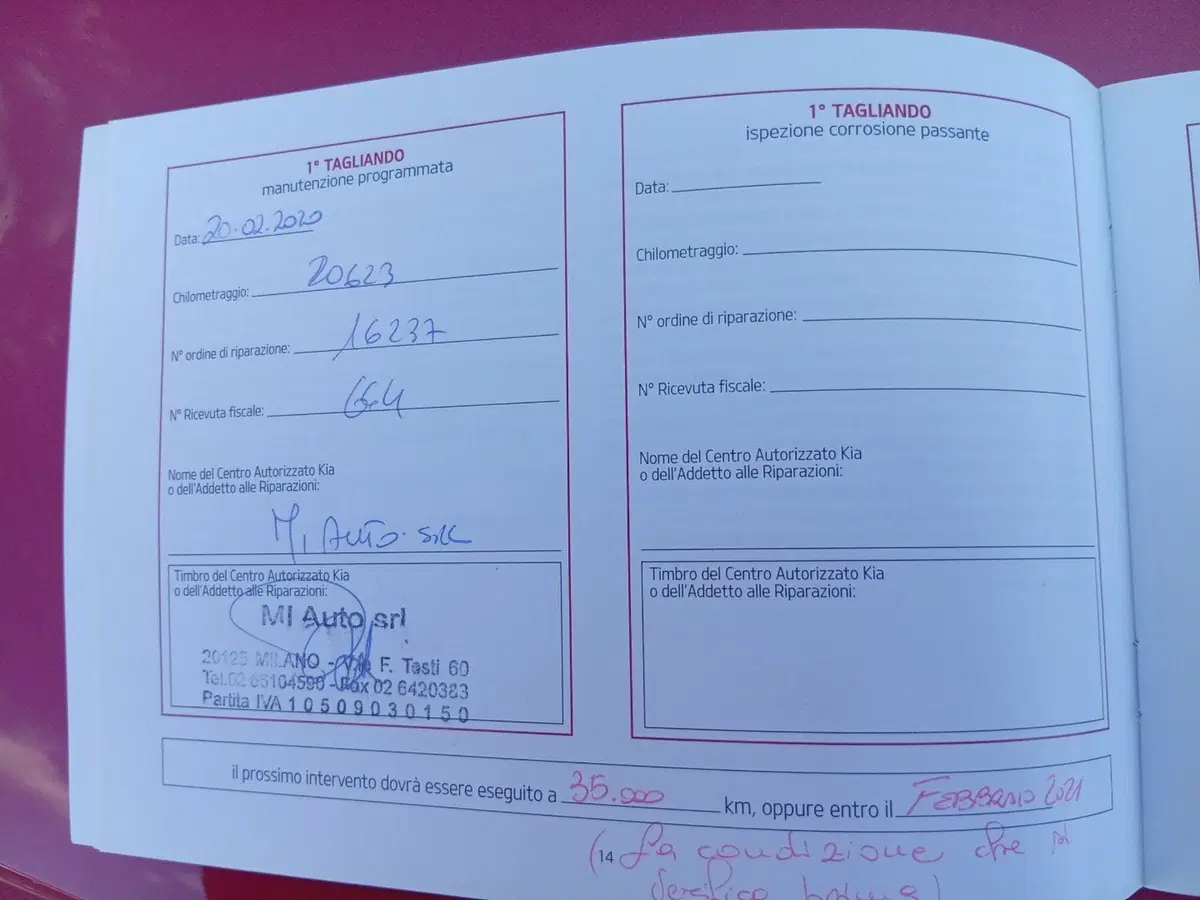 1° TAGLIANDO
manutenzione programmata
Data: 20-02-2020
Chilometraggio: 20623
N° ordine di riparazione: 16237
N° Ricevuta fiscale: 664
Nome del Centro Autorizzato Kia
o dell'Addetto alle Riparazioni:
MI AUTO SRL
Timbro del Centro Autorizzato Kia
o dell'Addetto alle Riparazioni:
MI Auto srl
20125 MILANO - F. Testi 60
Fax 02 6420383
Partita IVA 10509030150
1° TAGLIANDO
ispezione corrosione passante
Data:
Chilometraggio:
N° ordine di riparazione:
N° Ricevuta fiscale:
Nome del Centro Autorizzato Kia
o dell'Addetto alle Riparazioni:
Timbro del Centro Autorizzato Kia
o dell'Addetto alle Riparazioni:
il prossimo intervento dovrà essere eseguito a 35.000 km, oppure entro il FEBBRAIO 2021
14 (La condizione che si